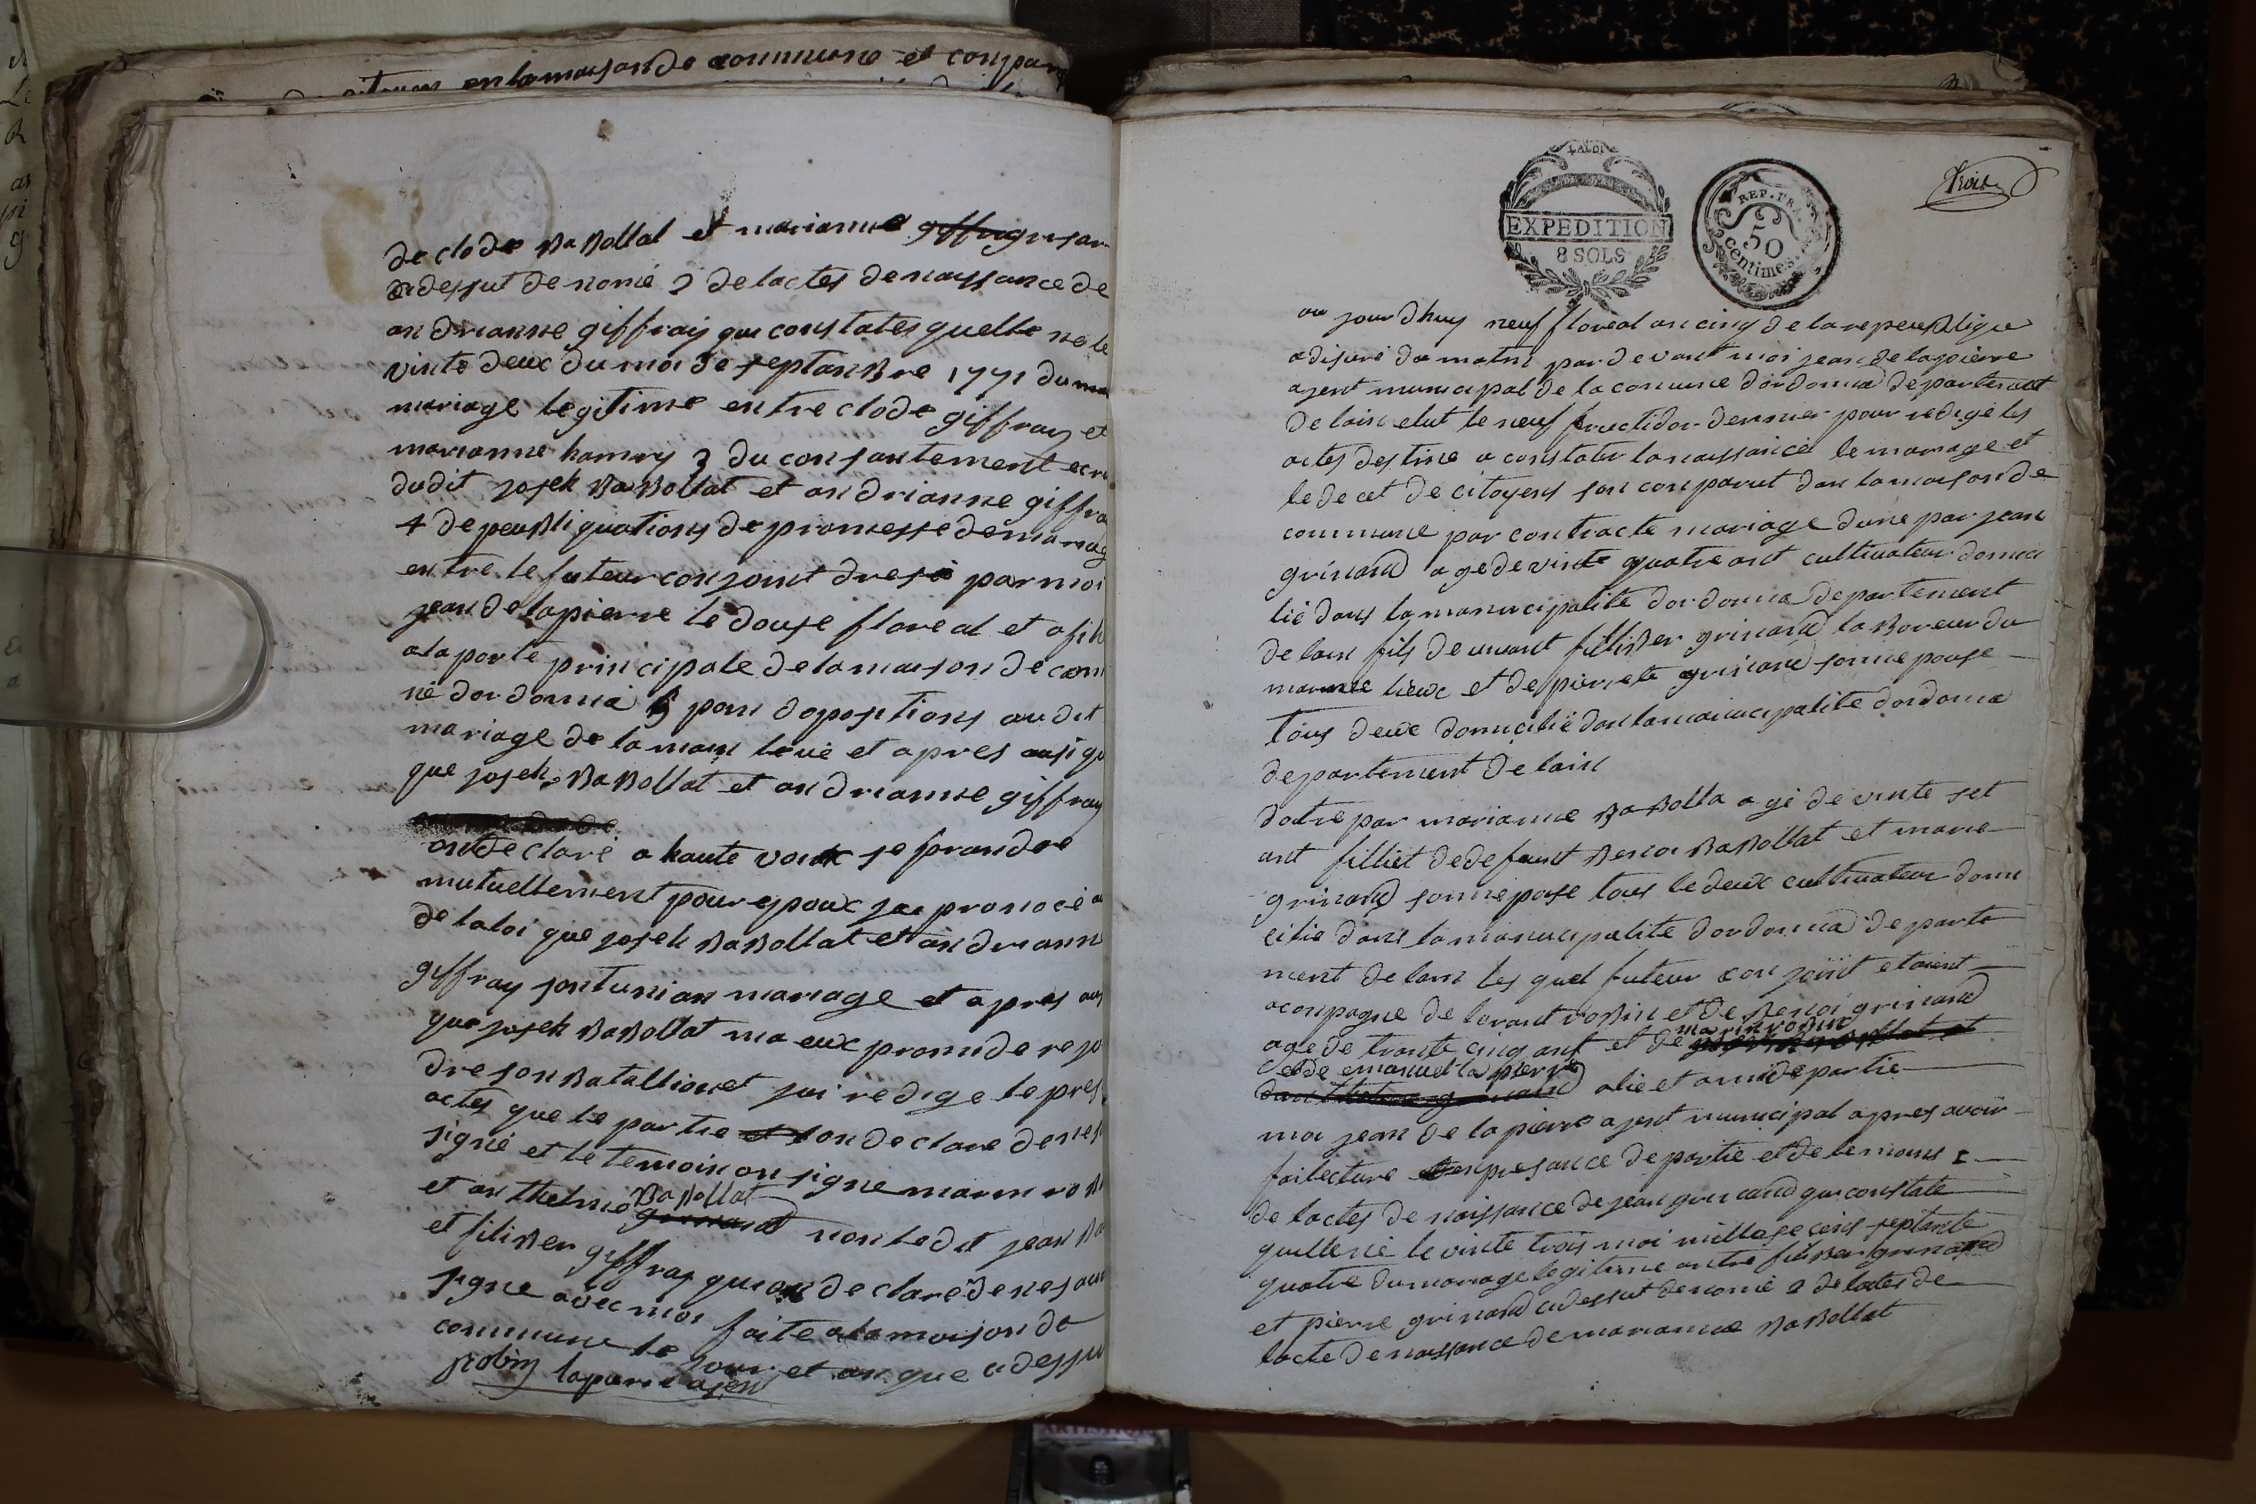 en la maison de commune et compar
de clode Babollat et marianne grinan
ci dessut de nomé 2 de lactes de naissance de
andrianne giffray qui constates quelle né le
vinte deux du moi de septanbre 1771 du
mariage legitime entre clode giffray et
marianne hanry 3 du consantement ecri
dudit josek Babollat et andrianne giffra
4 de peubliquations de promesse de mariag
entre le futeur conjoint dresé par moi
jean de lapierre le douse floreal et afih
a la porte principale de la maison de com
ne dordonna 5 poin dopositions au dit
mariage de la main levé et apres ausi qu
que josek Babollat et andrianne giffray
ont declaré a haute voix se prandre
mutuellement pour epoux jai pronocé a
de la loi que josek Babollat et andriann
giffray sont uni an mariage et apres
que josek Babollat ma eux promi de rejo
dre son batallion et jai redige le pres
actes que le partie on declare de nes
signé et le temoin on signe marin rob
et anthelme Babollat non ledit jean Ba
et filiber giffray qui on declaré de ne saus
signe avec moi faite a la maison de
commune le jour et an que a dessu
Robin lapierre ajen
LA LOI
EXPEDITION
8 SOLS
REP. FRA.
50
centimes.
trois
au jourdhuy neuf floreal an cinq de la repeublique
a disure du matin par devant moi jean de lapierre
ajent municipal de la comune dordonna departemant
de lain elut le neuf fructidor dernier pour redigé les
actes destine a constater la naissance le mariage et
le decet de citoyens son conparut dan la maison de
commune par contracte mariage dune par jean
grinand age de vinte quatre ant cultivateur domici
lié dans la manucipalite dordonna departement
de lain fils de vivant filliber grinand laboreur du
maime lieux et de pierrete grinand sonne pouse
tous deux domicilié dan la manucipalite dordonna
departement de lain
dotre par marianne Babolla agé de vinte set
ant filliet de defeunt Benoi Babollat et marie
grinand sonne pose tous le deux cultivateur domi
cilié dans la manucipalite dordonna departe
ment de lain les quel futeur conjoint etaient
aconpagne de lorant robin et de Benoi grinand
age de trante cinq ant et de marin robin
et de emanuel lapierre alie et ami de partie
moi jean de la pierre ajent municipal apres avoir
fait lecture en presance de partie et de temoins 1
de lactes de naissance de jean grinand qui constate
quille né le vinte trois moi mille se cens septante
quatre du mariage legitime entre filiber grinand
et pierre grinand cidessut denomé 2 de lactes de
lacte de naissance de marianne Babollat